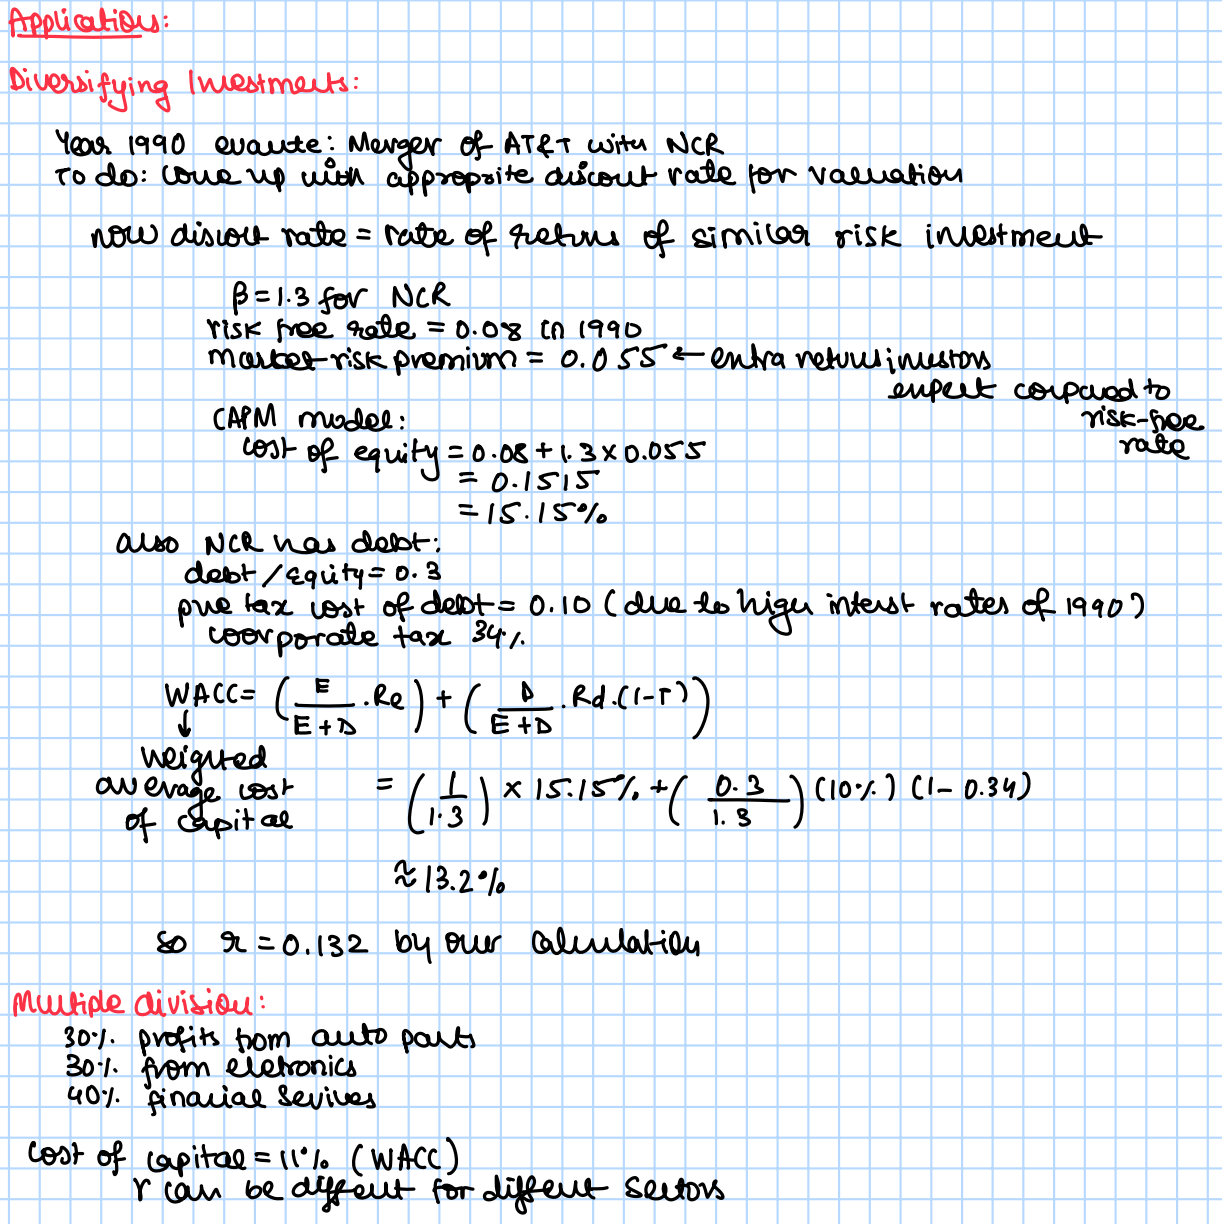 Applications:
Diversifying Investments:
Year 1990 evaute: Merger of AT&T with NCR
To do: come up with approprite discout rate for valuation
now discout rate = rate of returns of similar risk investment
β = 1.3 for NCR
risk free rate = 0.08 in 1990
market risk premium = 0.055 ← extra returns investors
expect compared to
risk-free
rate
CAPM model:
cost of equity = 0.08 + 1.3 × 0.055
= 0.1515
= 15.15%
also NCR has debt:
debt / equity = 0.3
pre tax cost of debt = 0.10 (due to high interst rates of 1990)
coorporate tax 34%
WACC = (E/(E+D) . Re) + (D/(E+D) . Rd.(1-T))
↓
Weighted
average cost
of capital
= (1/1.3) × 15.15% + (0.3/1.3) (10%) (1 - 0.34)
≈ 13.2%
so r = 0.132 by our calculation
Multiple division:
30% profits from auto parts
30% from eletronics
40% finacial sevices
cost of capital = 11% (WACC)
r can be diffent for diffent sectors